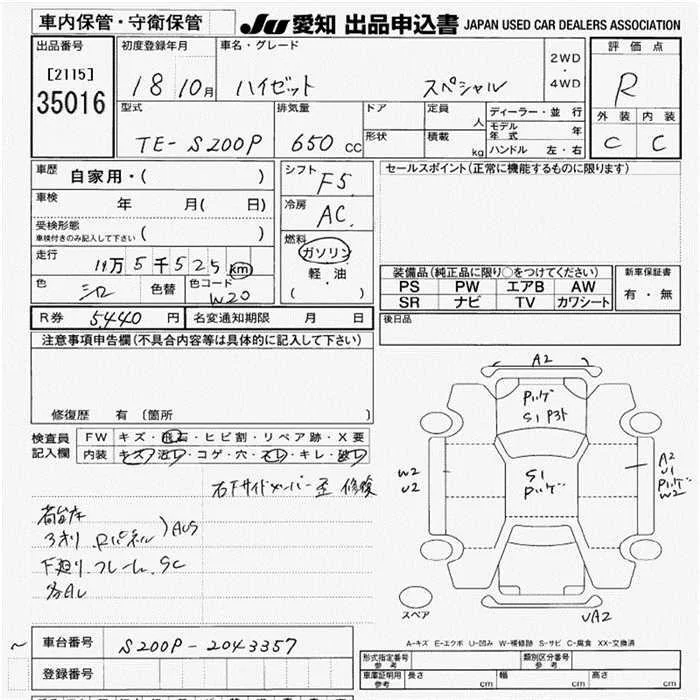 車内保管・守衛保管
JU 愛知 出品申込書 JAPAN USED CAR DEALERS ASSOCIATION
出品番号
[2115]
35016
初度登録年月
18 10月
車名・グレード
ハイゼット スペシャル
2WD
・
4WD
評価点
R
外装 内装
C C
型式
TE- S200P
排気量
650 CC
ドア
形状
定員
人
積載
kg
ディーラー・並行
モデル年式 年
ハンドル 左・右
車歴
自家用・( )
車検
年 月( 日)
受検形態
車検付きのみ記入して下さい ( )
走行
万 5 千 5 2 5 km
色
シロ
色替
色コード
W20
シフト
F5
冷房
AC
燃料
ガソリン
軽・油
( )
セールスポイント(正常に機能するものに限ります)
装備品(純正品に限り○をつけてください)
PS PW エアB AW
SR ナビ TV カワシート
新車保証書
有・無
R券 5440 円 名変通知期限 月 日
後日品
注意事項申告欄(不具合内容等は具体的に記入して下さい)
修復歴 有 〔箇所 〕
検査員
記入欄
FW キズ・飛石・ヒビ割・リペア跡・X要
内装 キズ・汚レ・コゲ・穴・スレ・キレ・破レ
右下サイドメンバー歪 修復
荷台床
3オリ Rパネル )AUS
下廻り.フレーム.SC
A2
Pハゲ
S1 P3ト
S1
Pハゲ
W2
U2
A2
U1
Pハゲ
W2
UA2
スペア
A-キズ E-エクボ U-凹み W-補修跡 S-サビ C-腐食 XX-交換済
車台番号 S200P-2043357
登録番号
形式指定番号
参考
類別区分番号
参考
車庫証明用
参考
長さ cm 幅 cm 高さ cm